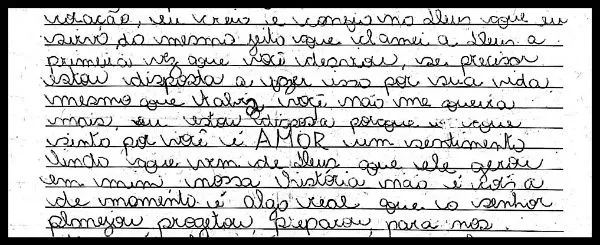 votação, eu creio e confio no Deus que eu
sirvo, do mesmo jeito que clamei a Deus a
primeira vez que você desviou, se precisar
estou disposta a fazer isso por sua vida
mesmo que talvez você não me queira
mais, eu estou disposta porque o que
sinto por você é AMOR um sentimento
lindo que vem de Deus que ele gerou
em mim nossa história não é coisa
de momento é algo real que o senhor
planejou projetou preparou para nós.